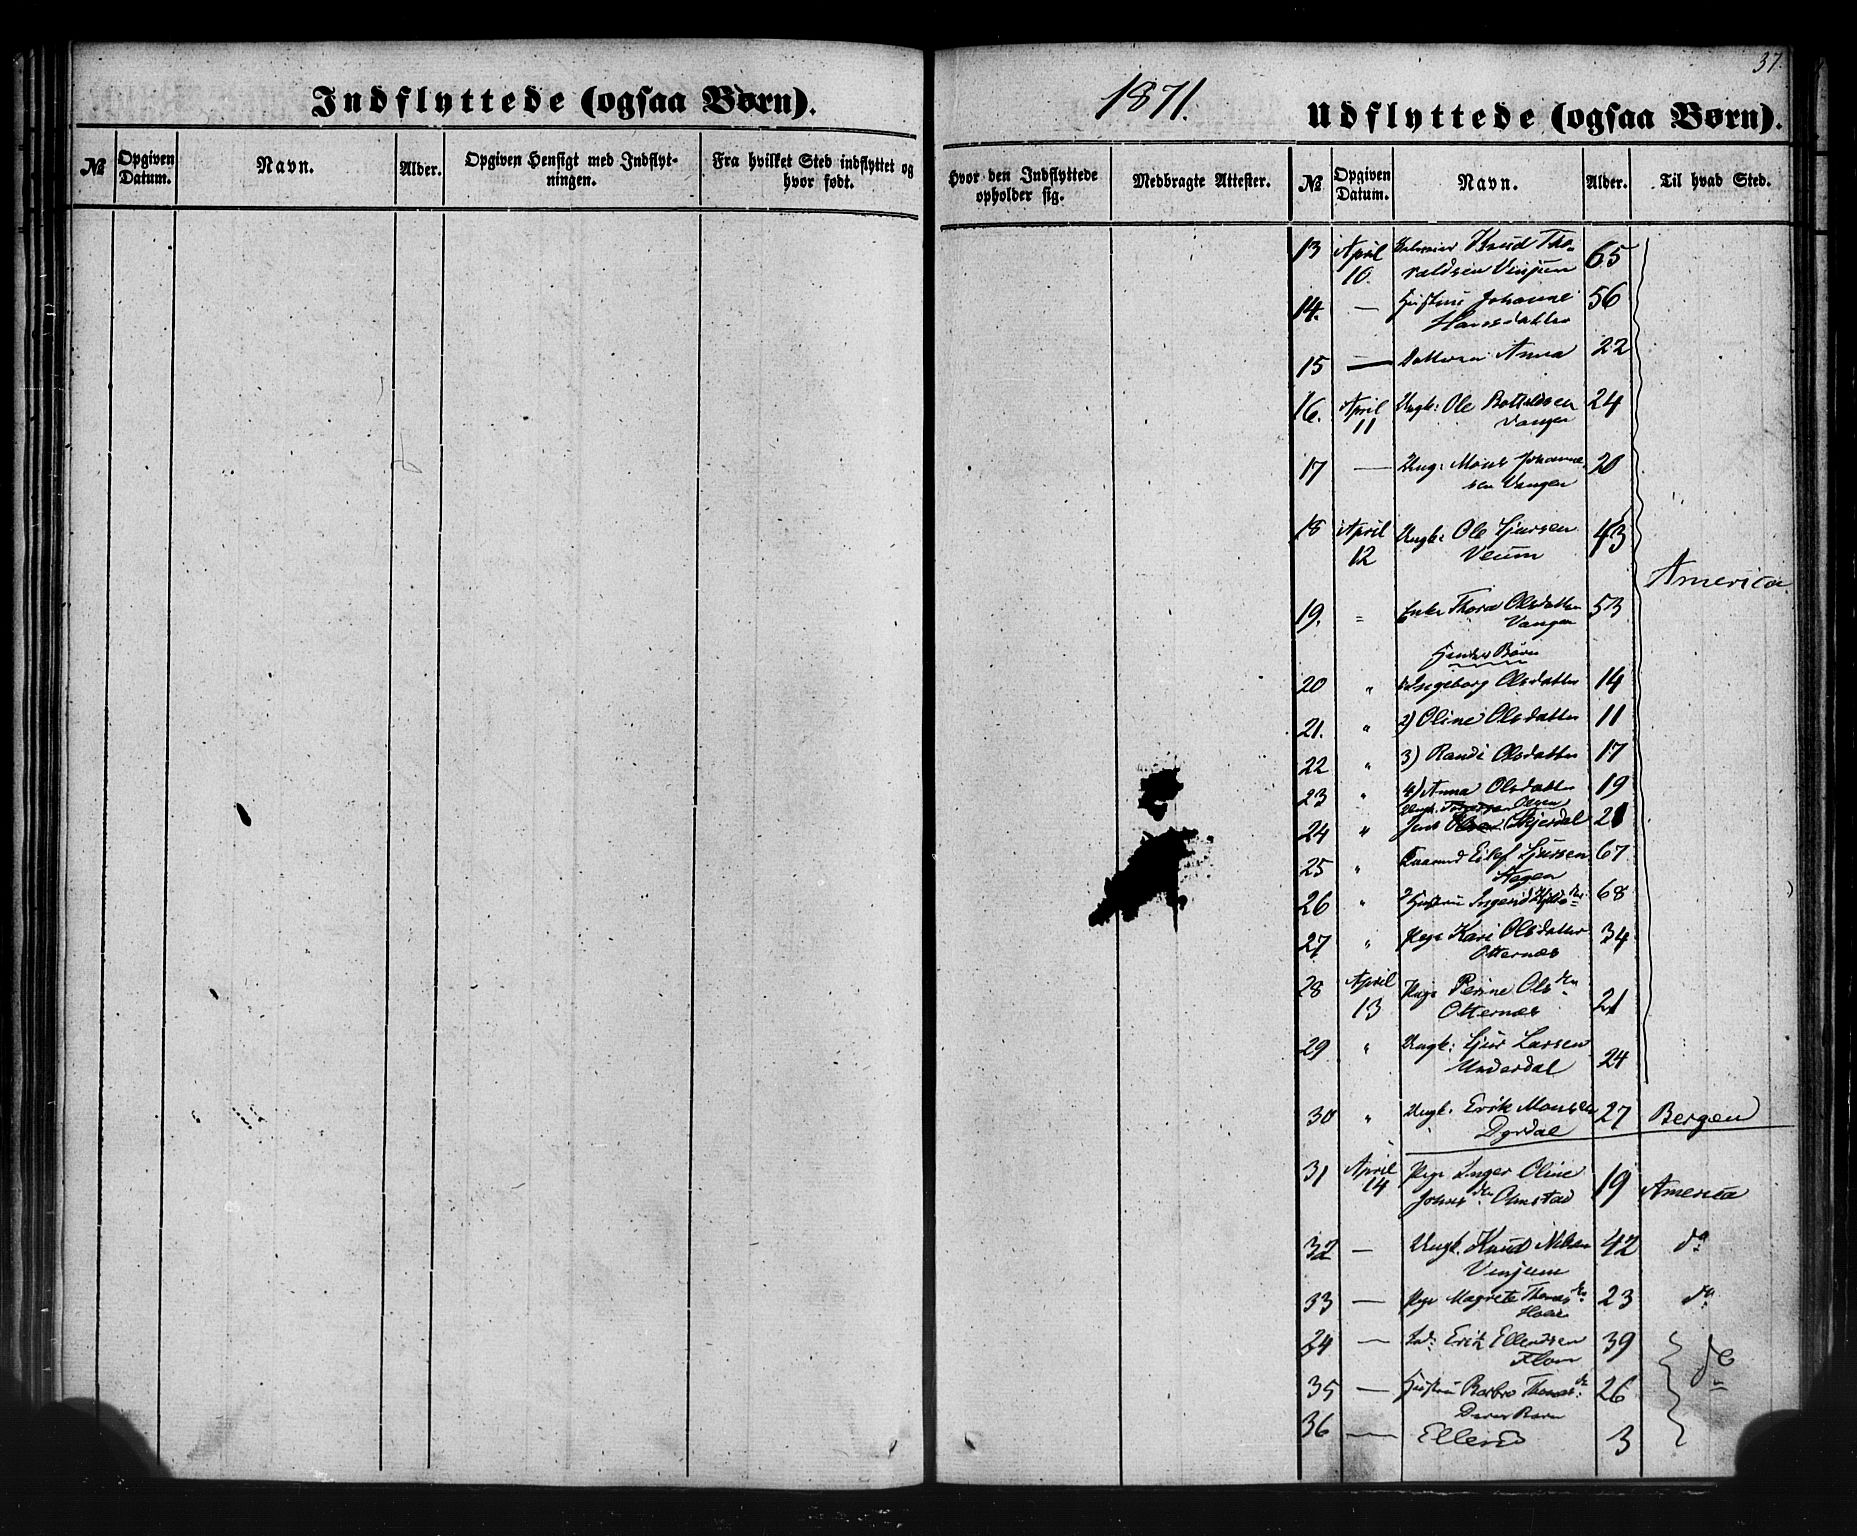 37.
Indflyttede (ogsaa Børn).
1871.
Udflyttede (ogsaa Børn).
№ Opgiven Datum. Navn. Alder. Opgiven Hensigt med Indflytningen. Fra hvilket Sted indflyttet og hvor født.
Hvor den Indflyttede opholder sig. Medbragte Attester. № Opgiven Datum. Navn. Alder. Til hvad Sted.
13 April 10. Knud Tho- 65
raldsen Vinjum
14. — Hustru Johanne 56
Hansdatter
15 — Datteren Anna 22
16. April 11 Ungk: Ole Botholdsen 24
Vangen
17 — Ung: Mons Johanne 20
sen Vangen
18 April 12 Ungk: Ole Sjursen 43
Veum
America
19. " Enke Thora Olsdatter 53
Vangen
Hendes Børn
20 " 1) Ingeborg Olsdatter 14
21. " 2) Oline Olsdatter 11
22 " 3) Randi Olsdatter 17
23 " 4) Anna Olsdatter 19
Ungk. Olsen
24 " Jens Skjerdal 21
25 " Eilef Sjursen 67
26 " Hustru Ingerid 68
27 " Pige Kari Olsdatter 34
Otternæs
28 April 13 Pige Perine Olsdtr 21
Otternæs
29 " Ungk: Sjur Larsen 24
Underdal
30 " Ungk. Erik Monsen 27 Bergen
Dyrdal
31 April 14 Pige Inger Oline 19 America
Johnsdtr Onstad
32 — Ungk. Knud Nilsen 42 do
Vinjum
33 — Pige Magrete Thomasdtr 23 do
34 — Erik Ellendsen 39 do
Flom
35 — Hustru Barbro Thomasdr 26
Deres Barn
36 — Ellend 3